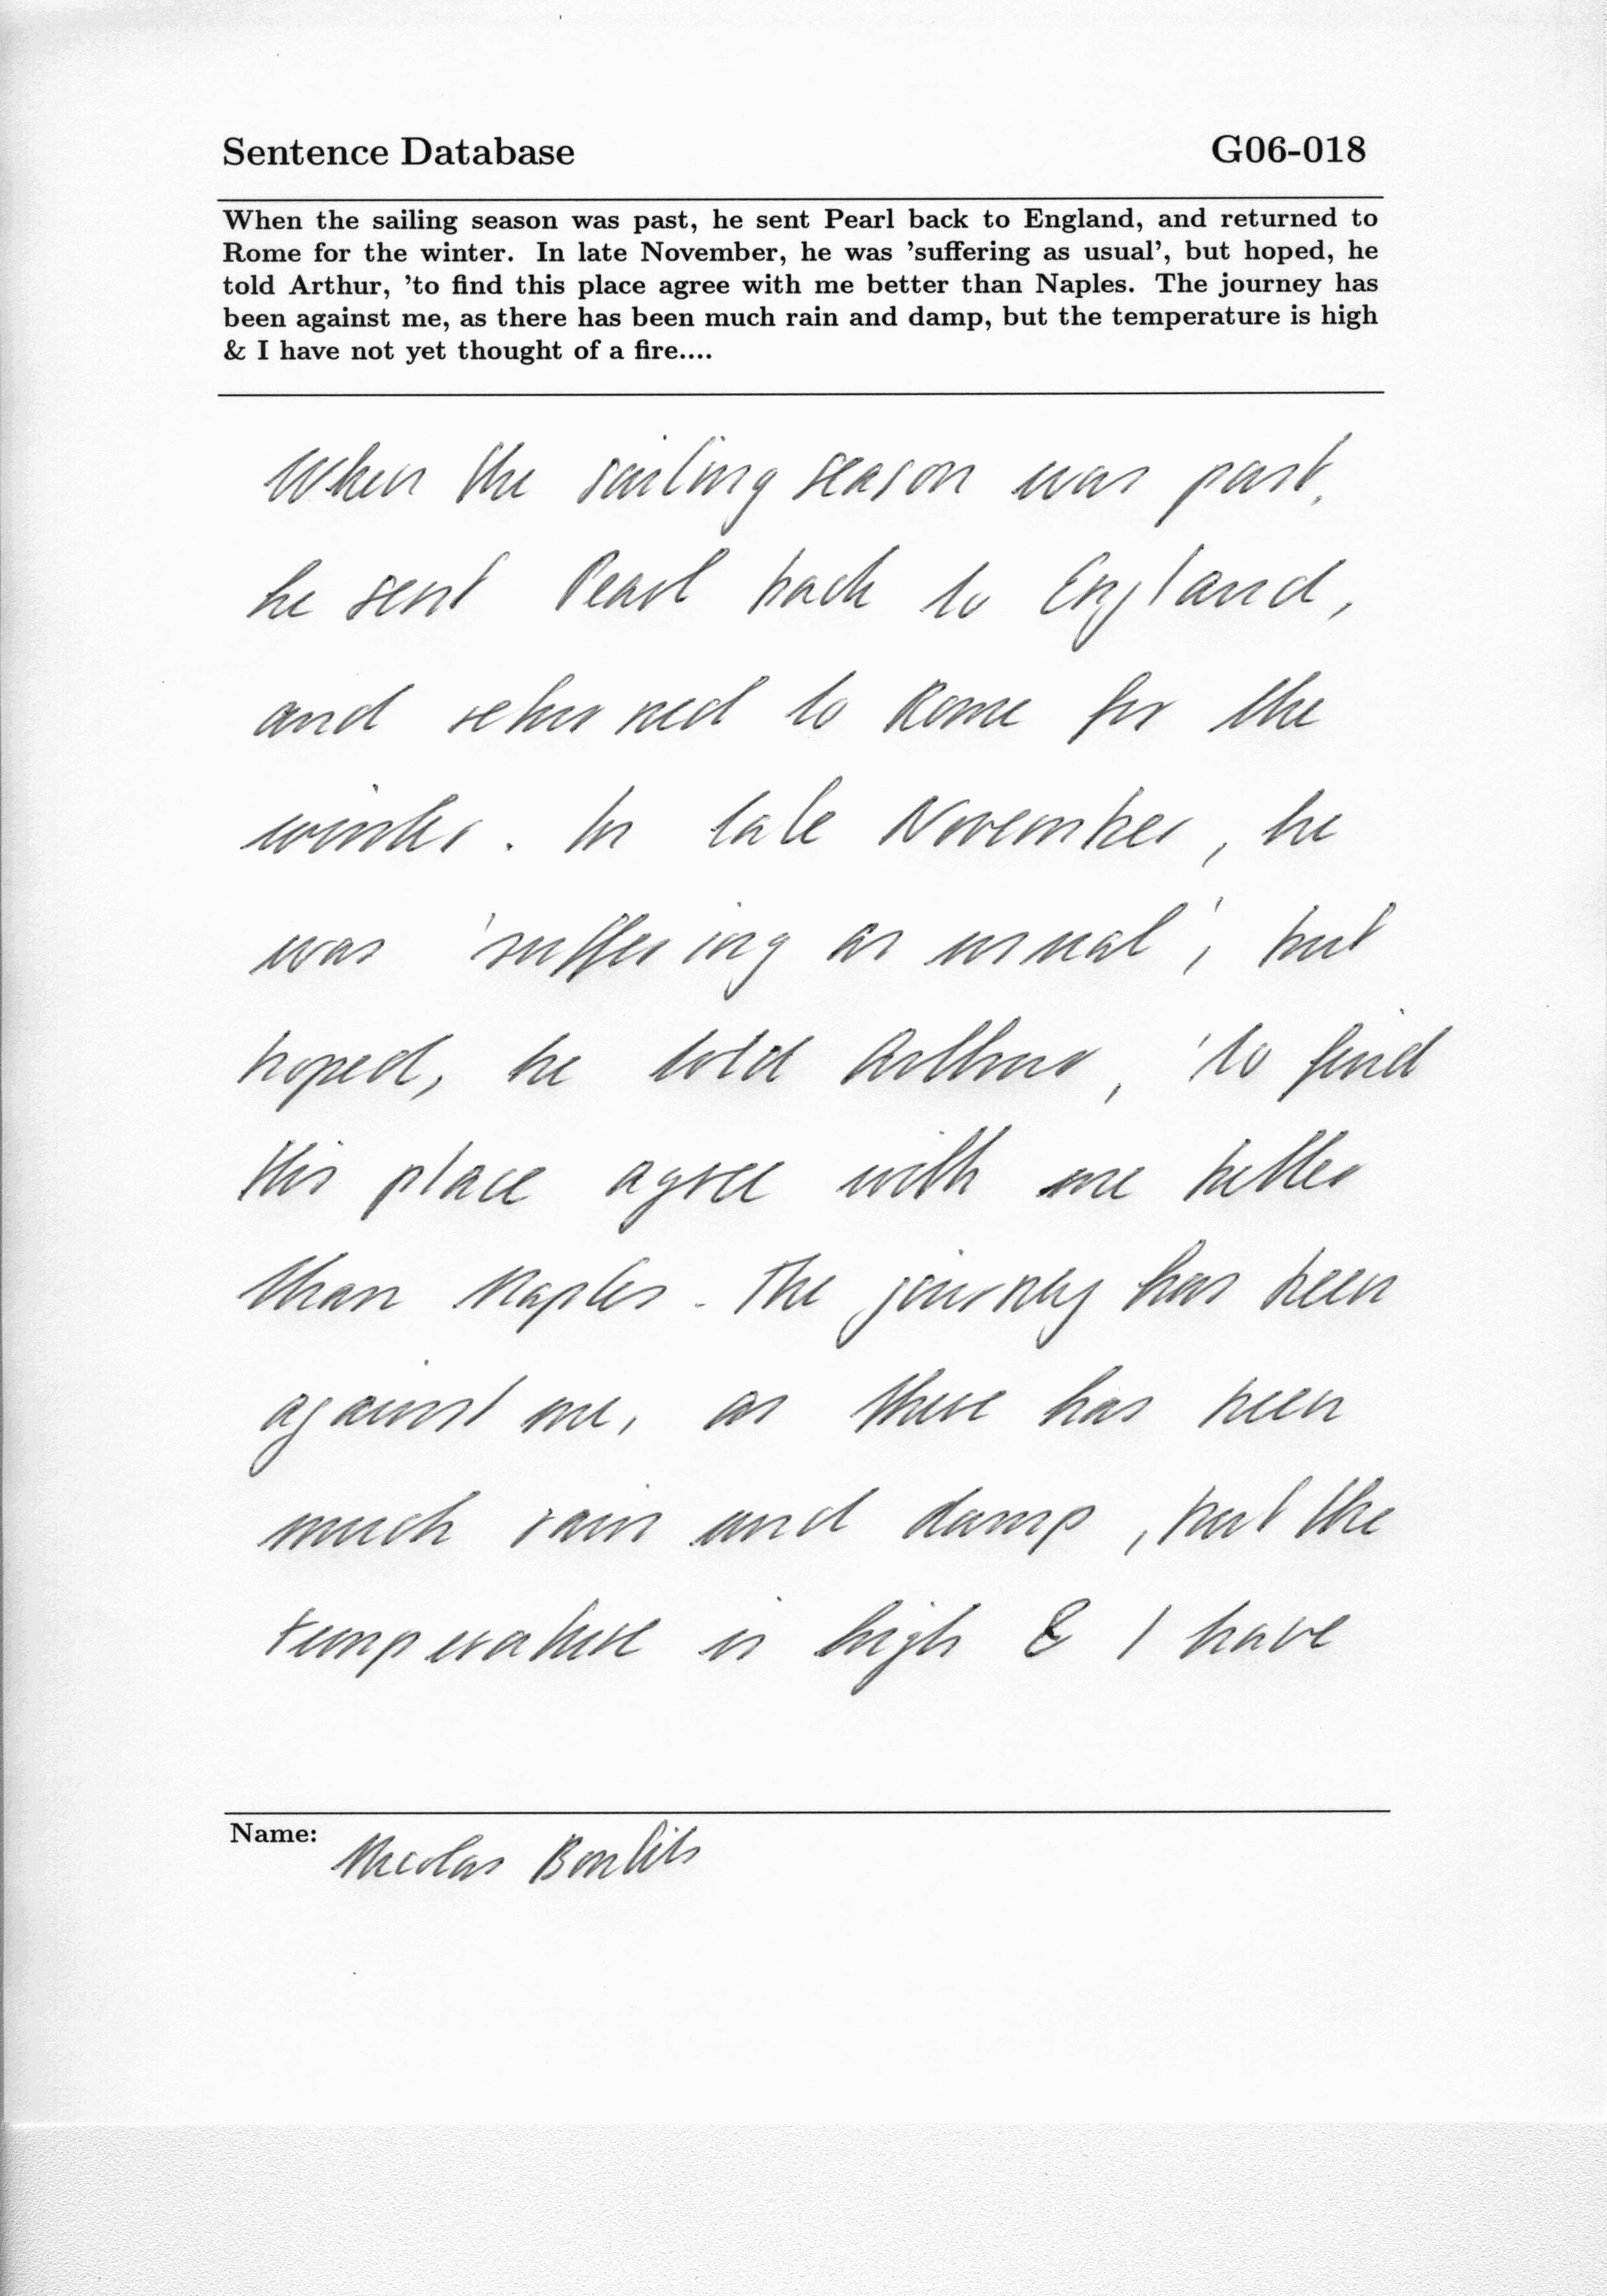 Sentence Database G06-018
When the sailing season was past, he sent Pearl back to England, and returned to
Rome for the winter. In late November, he was 'suffering as usual', but hoped, he
told Arthur, 'to find this place agree with me better than Naples. The journey has
been against me, as there has been much rain and damp, but the temperature is high
& I have not yet thought of a fire....
When the sailing season was past,
he sent Pearl back to England,
and returned to Rome for the
winter. In late November, he
was 'suffering as usual', but
hoped, he told Arthur, 'to find
this place agree with me better
than Naples. The journey has been
against me, as there has been
much rain and damp, but the
temperature is high & I have
Name: Nicolas